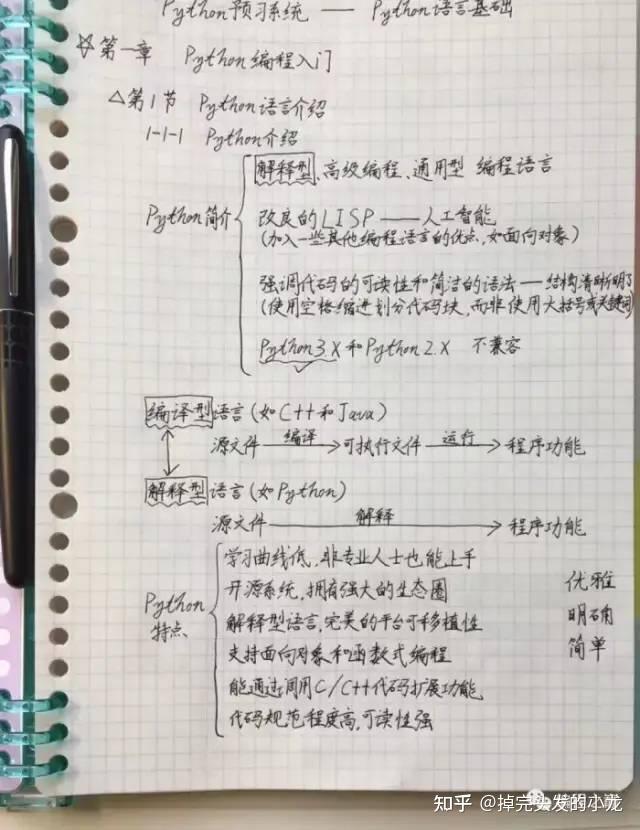 Python预习系统 —— Python语言基础
☆第一章 Python编程入门
△第1节 Python语言介绍
1-1-1 Python介绍
Python简介
解释型、高级编程、通用型 编程语言
改良的LISP —— 人工智能
(加入一些其他编程语言的优点,如面向对象)
强调代码的可读性和简洁的语法 — 结构清晰明了
(使用空格缩进划分代码块,而非使用大括号或关键词)
Python3.X和Python2.X 不兼容
编译型语言(如C++和Java)
源文件 编译→ 可执行文件 运行→ 程序功能
解释型语言(如Python)
源文件 解释→ 程序功能
Python特点
学习曲线低,非专业人士也能上手
开源系统,拥有强大的生态圈
解释型语言,完美的平台可移植性
支持面向对象和函数式编程
能通过调用C/C++代码扩展功能
代码规范程度高,可读性强
优雅
明确
简单
知乎 @掉完头发的小龙